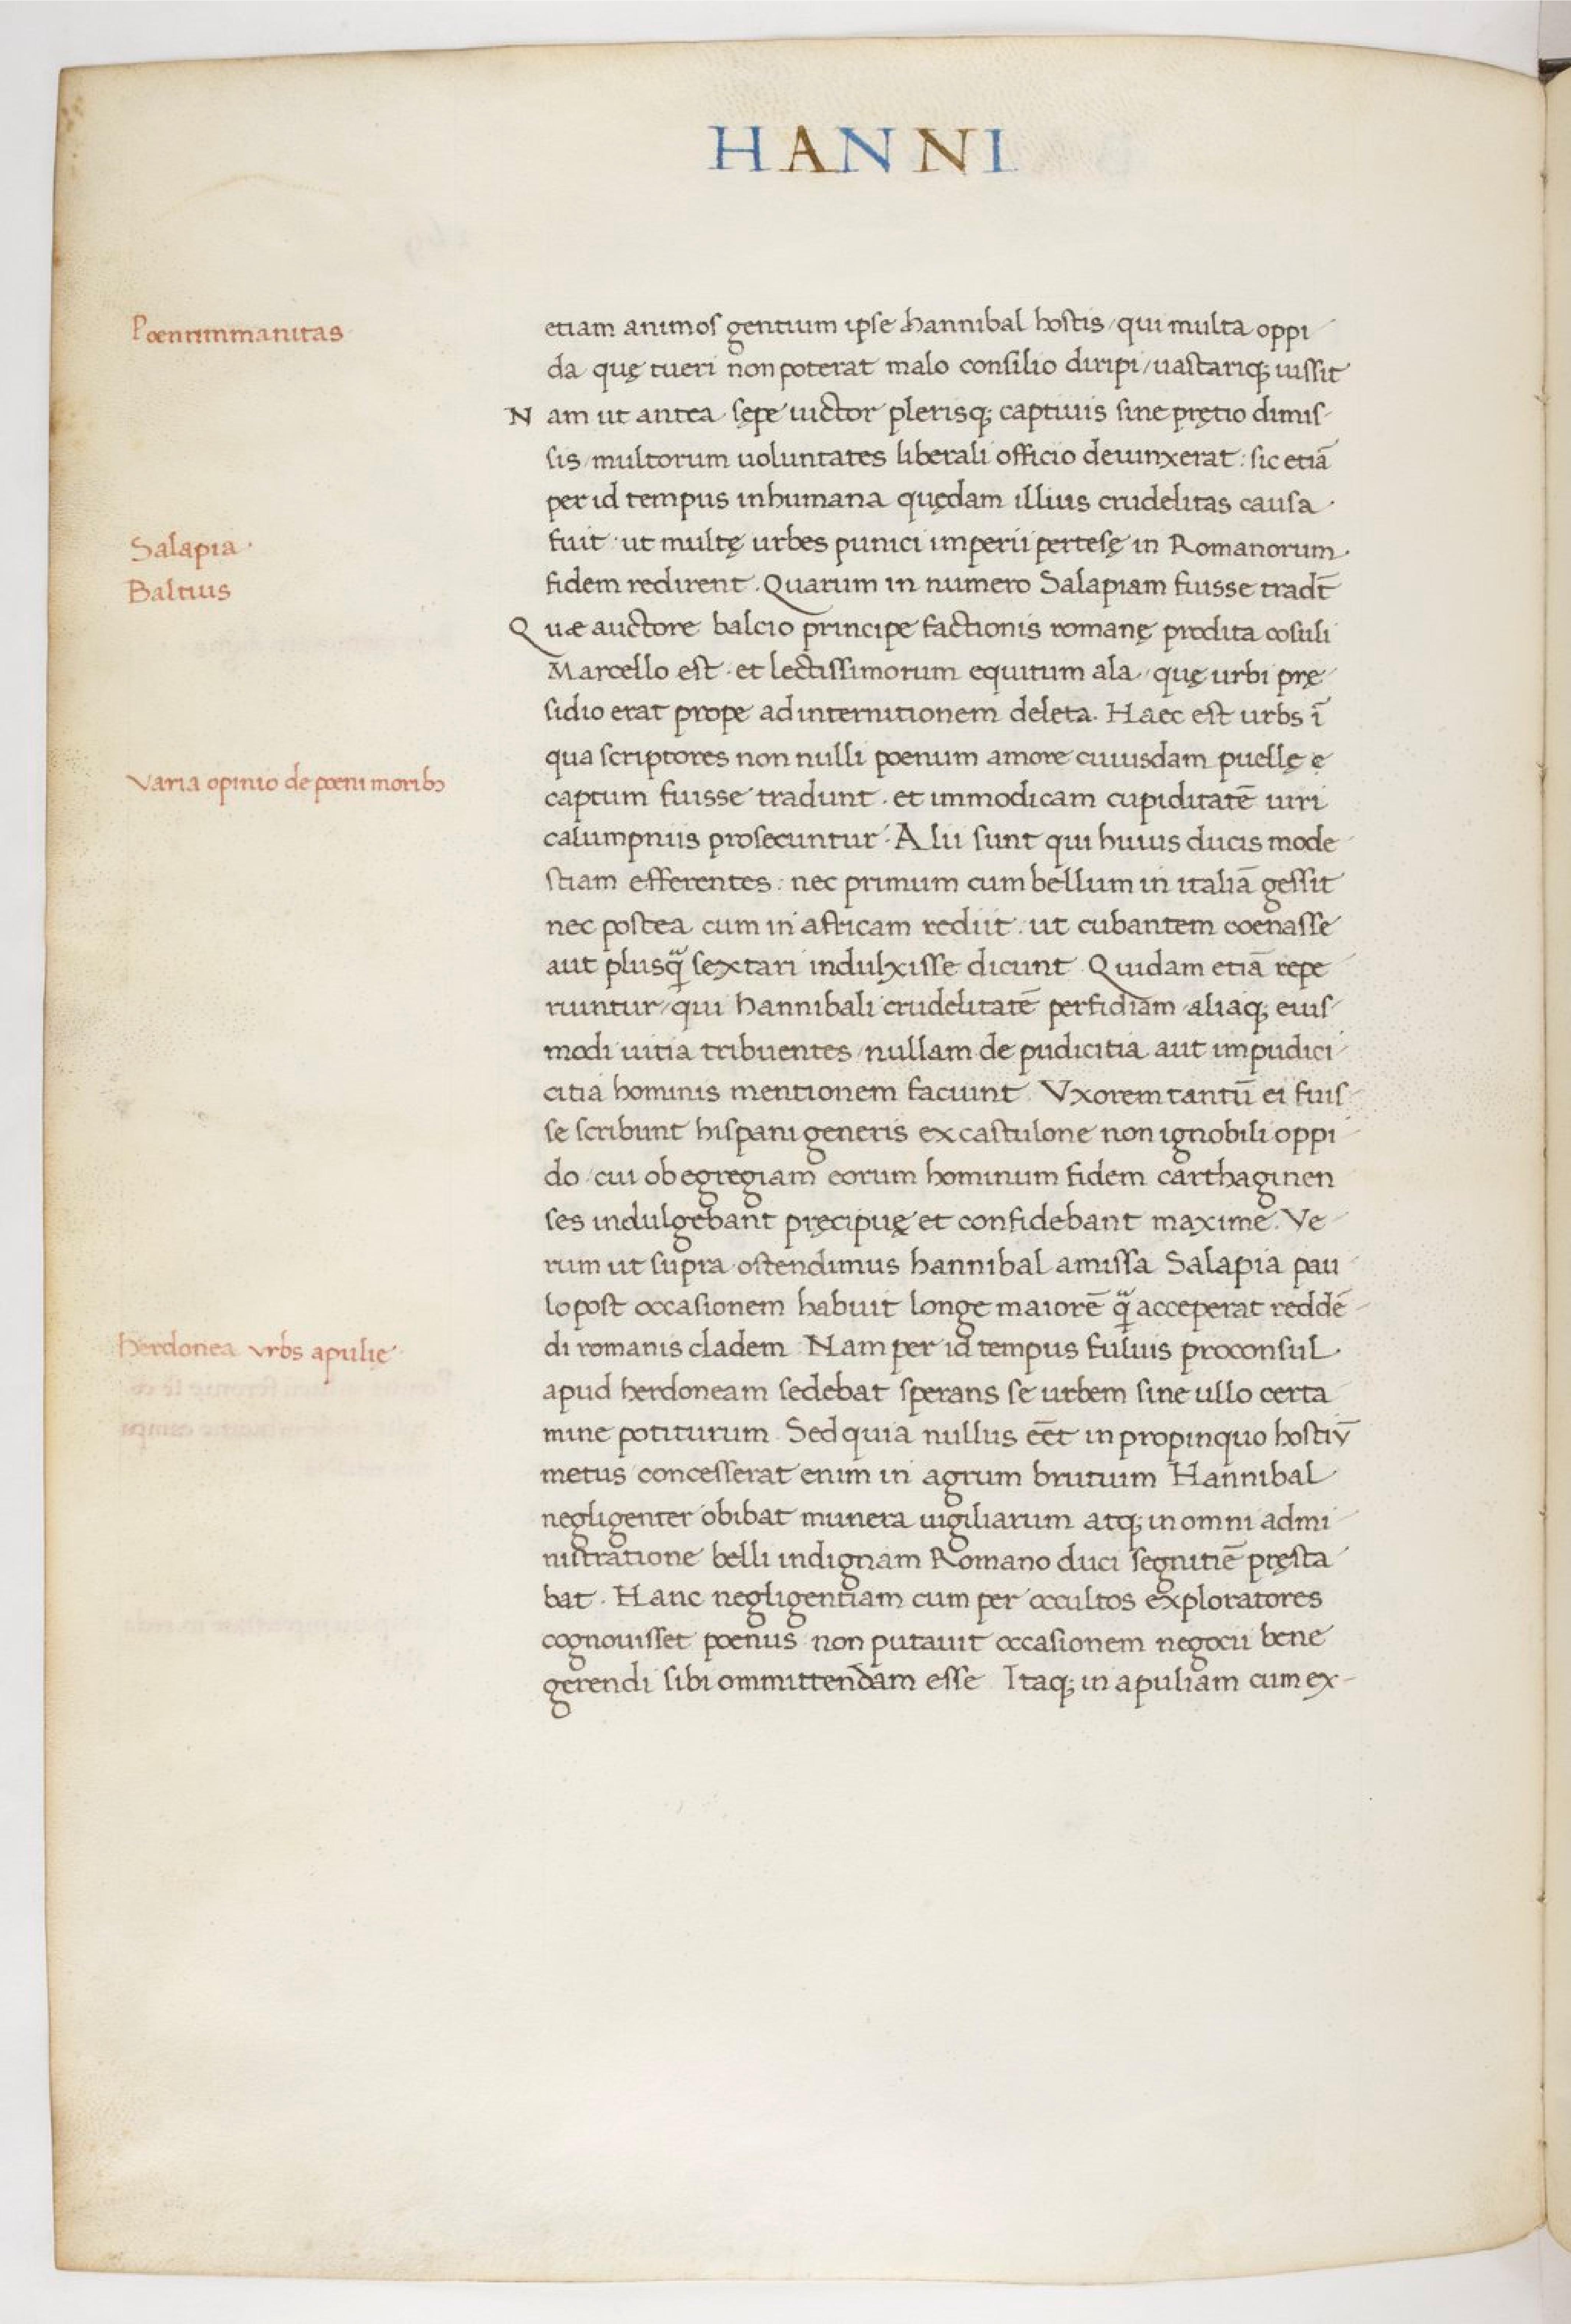 HANNI
Poeni immanitas
etiam animos gentium ipse hannibal hostis / qui multa oppi
da quę tueri non poterat malo consilio diripi / uastariq; iussit
Nam ut antea sępe uictor plerisq; captiuis sine prętio dimis
sis / multorum uoluntates liberali officio deuinxerat : sic etiā
per id tempus inhumana quędam illius crudelitas causa
Salapia
fuit · ut multę urbes punici imperii pertesę in Romanorum
Baltius
fidem redirent . Quarum in numero Salapiam fuisse tradt̄
Quæ auctore balcio principe factionis romanę prodita cosuli
Marcello est · et lectissimorum equitum ala / quę urbi prę
sidio erat prope ad internitionem deleta . Haec est urbs ī
qua scriptores non nulli poenum amore cuiusdam puellę e
Varia opinio de poeni moribꝫ
captum fuisse tradunt · et immodicam cupiditatē uiri
calumpniis prosecuntur · Alii sunt qui huius ducis mode
stiam efferentes : nec primum cum bellum in italiā gessit
nec postea cum in africam rediit · ut cubantem coenasse
aut plusq̃ sextari indulxisse dicunt Quidam etiā repe
riuntur / qui hannibali crudelitatē perfidiam / aliaq; eius
modi uitia tribuentes / nullam de pudicitia aut impudici
citia hominis mentionem faciunt . Vxorem tantū ei fuis
se scribunt hispani generis ex castulone non ignobili oppi
do / cui ob egregiam eorum hominum fidem carthaginen
ses indulgebant pręcipuę et confidebant maxime . Ve
rum ut supra ostendimus hannibal amissa Salapia pau
lo post occasionem habuit longe maiorē q̃ acceperat reddē
herdonea vrbs apulię
di romanis cladem . Nam per id tempus fuluis proconsul
apud herdoneam sedebat sperans se urbem sine ullo certa
mine potiturum . Sed quia nullus eēt in propinquo hostiū
metus concesserat enim in agrum brutium Hannibal
negligenter obibat munera uigiliarum atq; in omni admi
nistratione belli indignam Romano duci segnitiē pręsta
bat . Hanc negligentiam cum per occultos exploratores
cognouisset poenus non putauit occasionem negocii bene
gerendi sibi ommittendam esse Itaq; in apuliam cum ex-